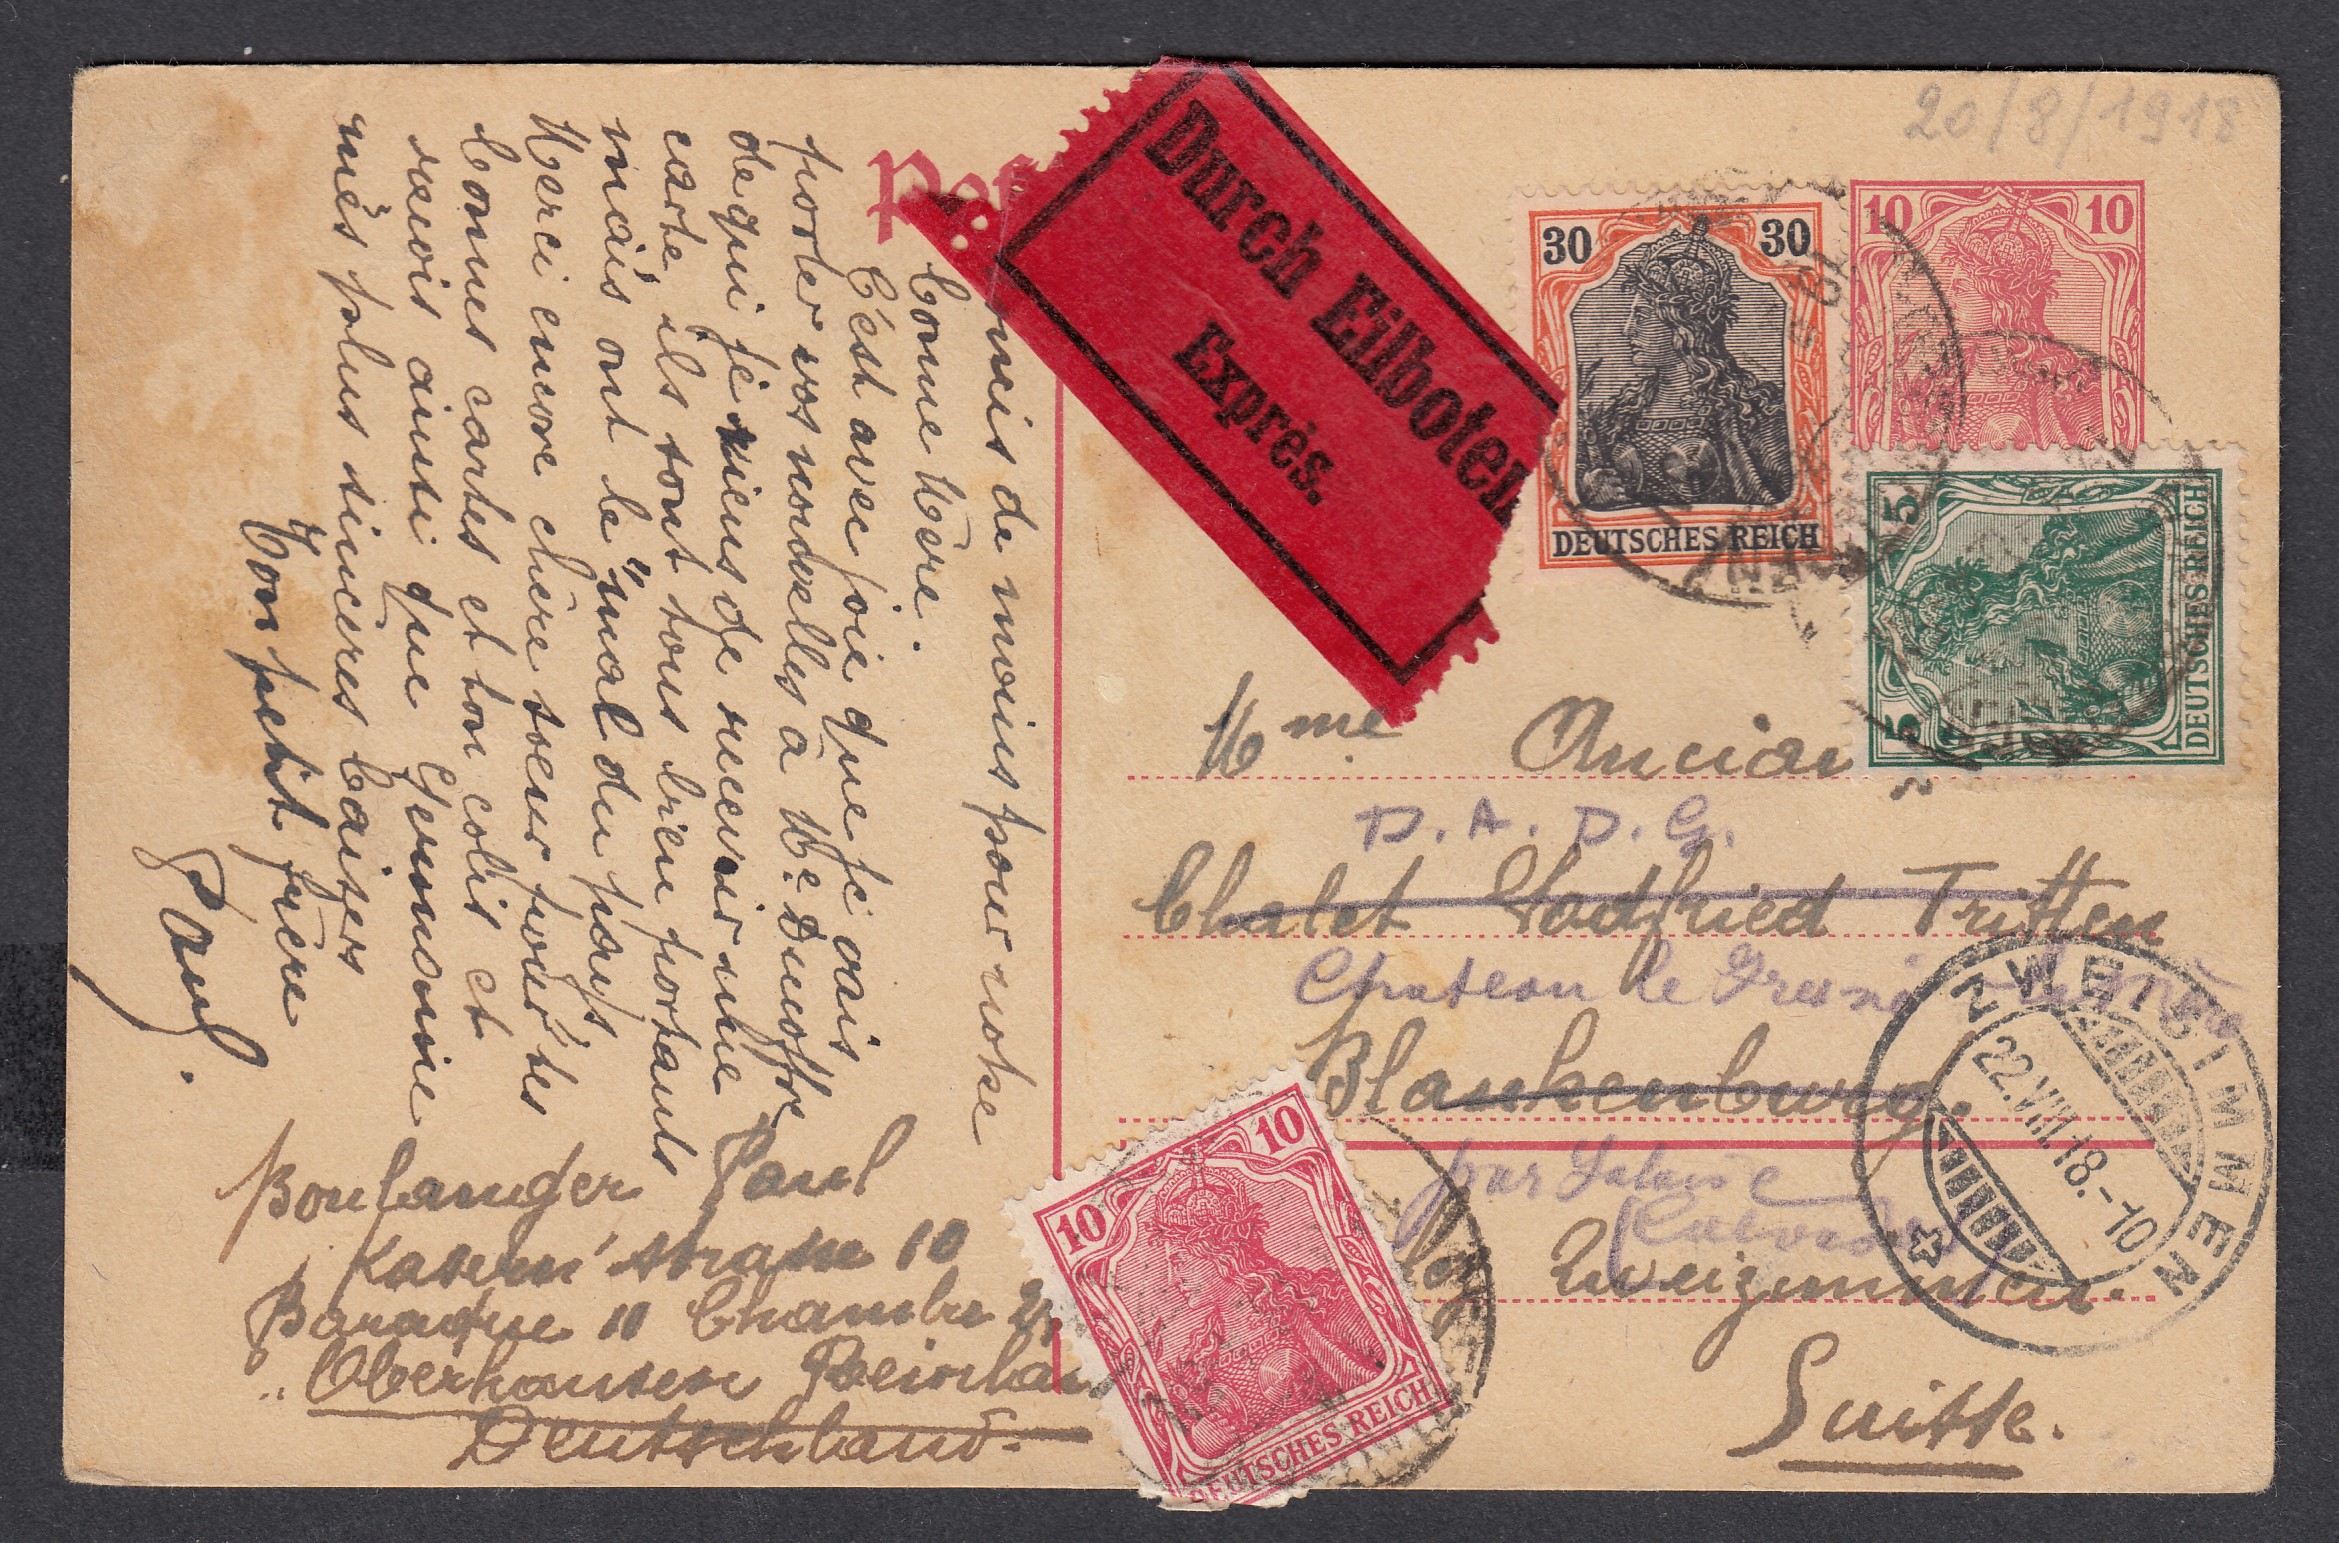 20/8/1918
Pos
Durch Eilboten
Exprès.
30 30
DEUTSCHES REICH
10 10
5 5
DEUTSCHES REICH
mis de moins pour note
bonne Mère.
C'est avec joie que je vais
porter vos nouvelles à Me
de qui je viens de recevoir une
carte, ils sont tous bien portants
mais ont le "mal du pays"
Merci encore chère soeur pour tes
bonnes cartes et ton colis et
reçois ainsi que Germaine
mes plus sincères baisers
Ton petit frère
Paul.
Boulanger Paul
Kasern' strasse 10
Baraque 10 Chambre
Oberhausen
Deutschland.
Mme Anciau
D. A. D. G.
Chalet Gottfried Tritten
Chateau le
Blankenburg.
par
Calvados
Zweizimmen.
Suisse.
ZWEISIMMEN
22.VIII.18.-10
10 10
DEUTSCHES REICH